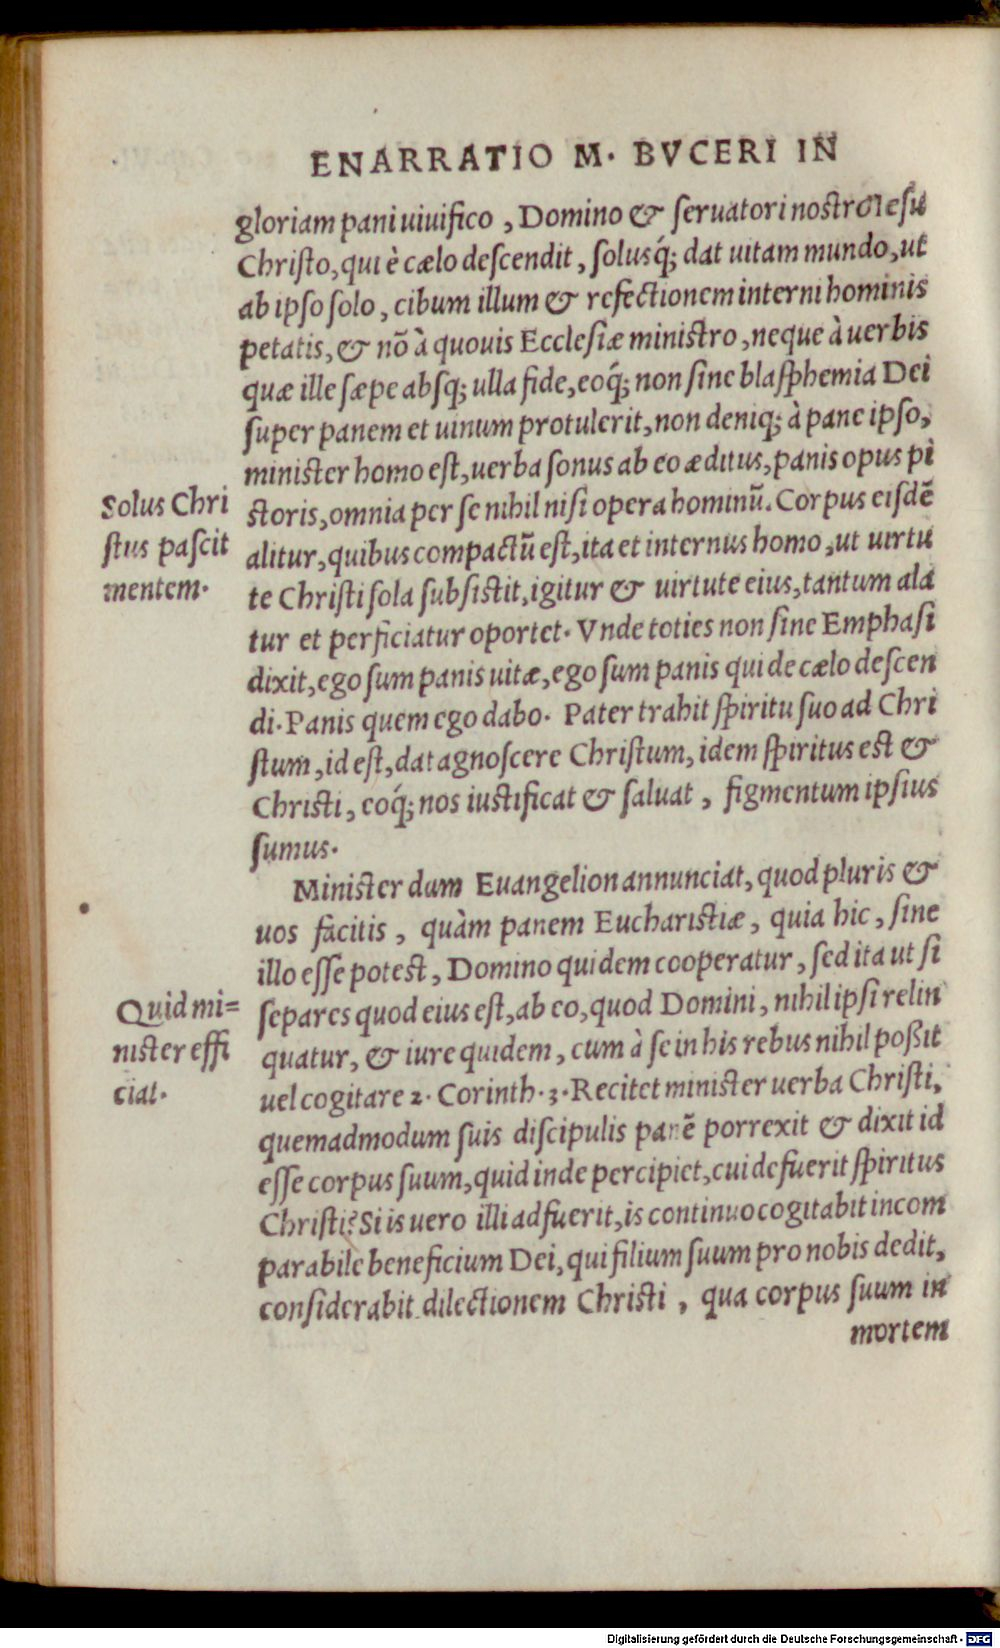 ENARRATIO M. BVCERI IN
gloriam pani uiuifico, Domino & seruatori nostro Iesu
Christo, qui è cælo descendit, solusq́; dat uitam mundo, ut
ab ipso solo, cibum illum & refectionem interni hominis
petatis, & nõ à quouis Ecclesiæ ministro, neque à uerbis
quæ ille sæpe absq; ulla fide, eoq́; non sine blasphemia Dei
super panem et uinum protulerit, non deniq; à pane ipso,
minister homo est, uerba sonus ab eo æditus, panis opus pi
storis, omnia per se nihil nisi opera hominũ. Corpus eisdẽ
alitur, quibus compactũ est, ita et internus homo, ut uirtu
te Christi sola subsistit, igitur & uirtute eius, tantum ala
tur et perficiatur oportet. Vnde toties non sine Emphasi
dixit, ego sum panis uitæ, ego sum panis qui de cælo descen
di. Panis quem ego dabo. Pater trahit spiritu suo ad Chri
stum, id est, dat agnoscere Christum, idem spiritus est &
Christi, eoq́; nos iustificat & saluat, figmentum ipsius
sumus.
Solus Chri
stus pascit
mentem.
Minister dum Euangelion annunciat, quod pluris &
uos facitis, quàm panem Eucharistiæ, quia hic, sine
illo esse potest, Domino quidem cooperatur, sed ita ut si
separes quod eius est, ab eo, quod Domini, nihil ipsi relin
quatur, & iure quidem, cum à se in his rebus nihil poßit
uel cogitare 2. Corinth. 3. Recitet minister uerba Christi,
quemadmodum suis discipulis panẽ porrexit & dixit id
esse corpus suum, quid inde percipiet, cui defuerit spiritus
Christi? Si is uero illi adfuerit, is continuo cogitabit incom
parabile beneficium Dei, qui filium suum pro nobis dedit,
considerabit dilectionem Christi, qua corpus suum in
mortem
Quid mi=
nister effi
ciat.
Digitalisierung gefördert durch die Deutsche Forschungsgemeinschaft - DFG